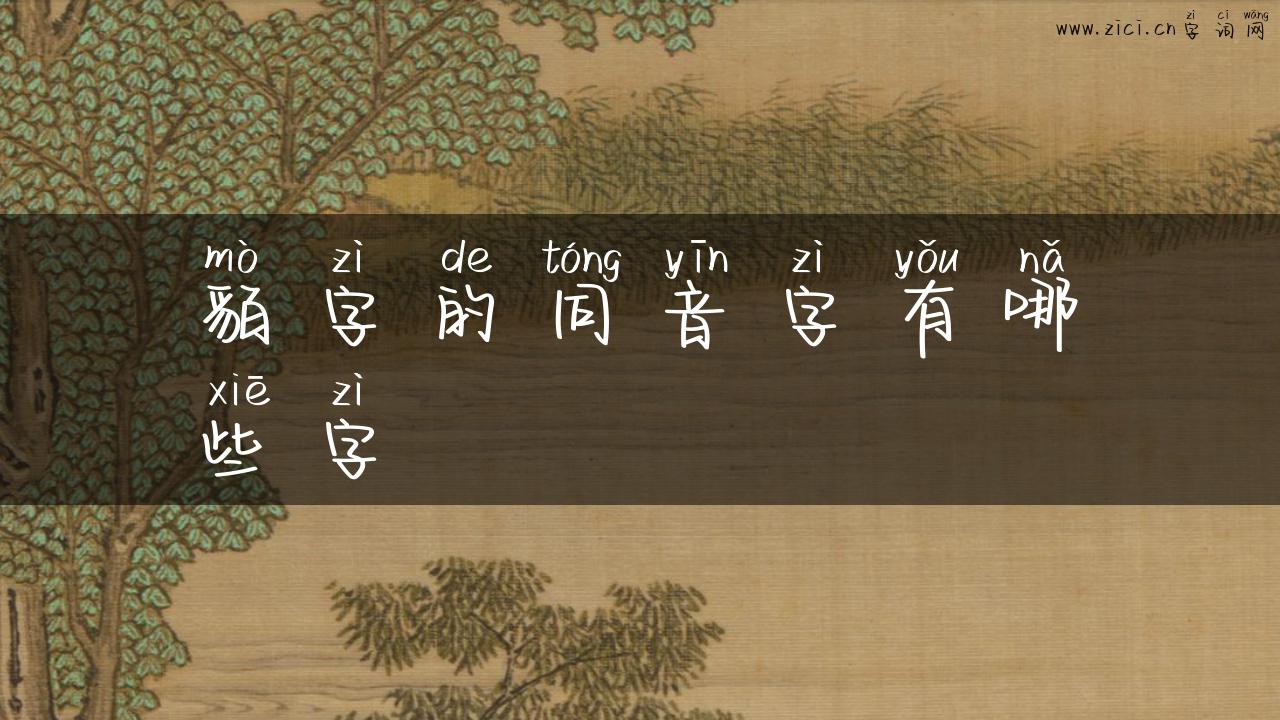 zì cí wǎng
www.zici.cn字词网
mò zì de tóng yīn zì yǒu nǎ
貊字的同音字有哪
xiē zì
些字